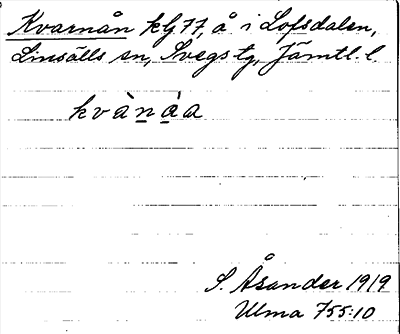 Kvarnån kg 77, å i Lofsdalen,
Linsälls sn, Svegs tg, Jämtl. l.
kvànàa
S. Åsander 1919
Ulma 755:10